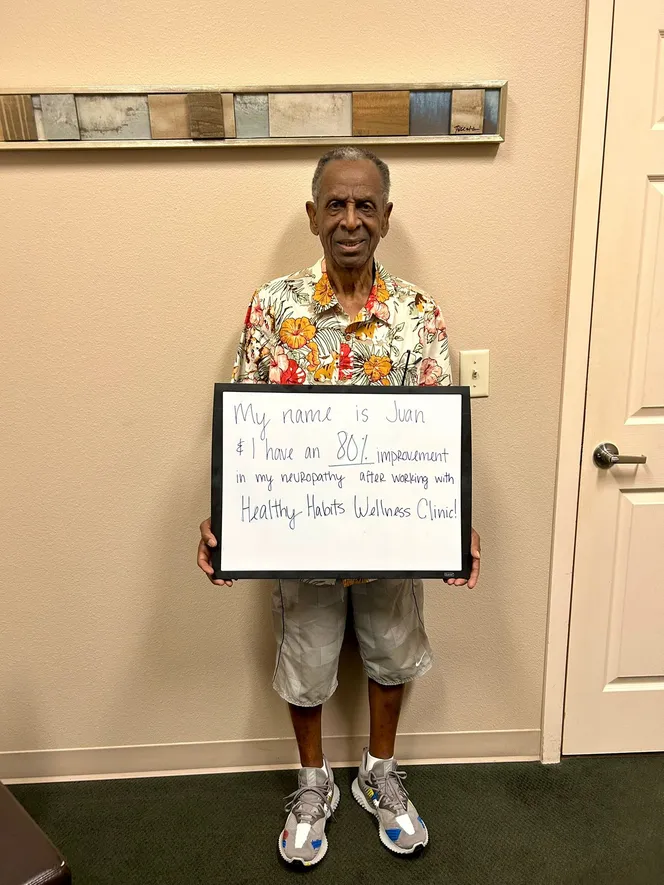 My name is Juan
& I have an 80% improvement
in my neuropathy after working with
Healthy Habits Wellness Clinic!